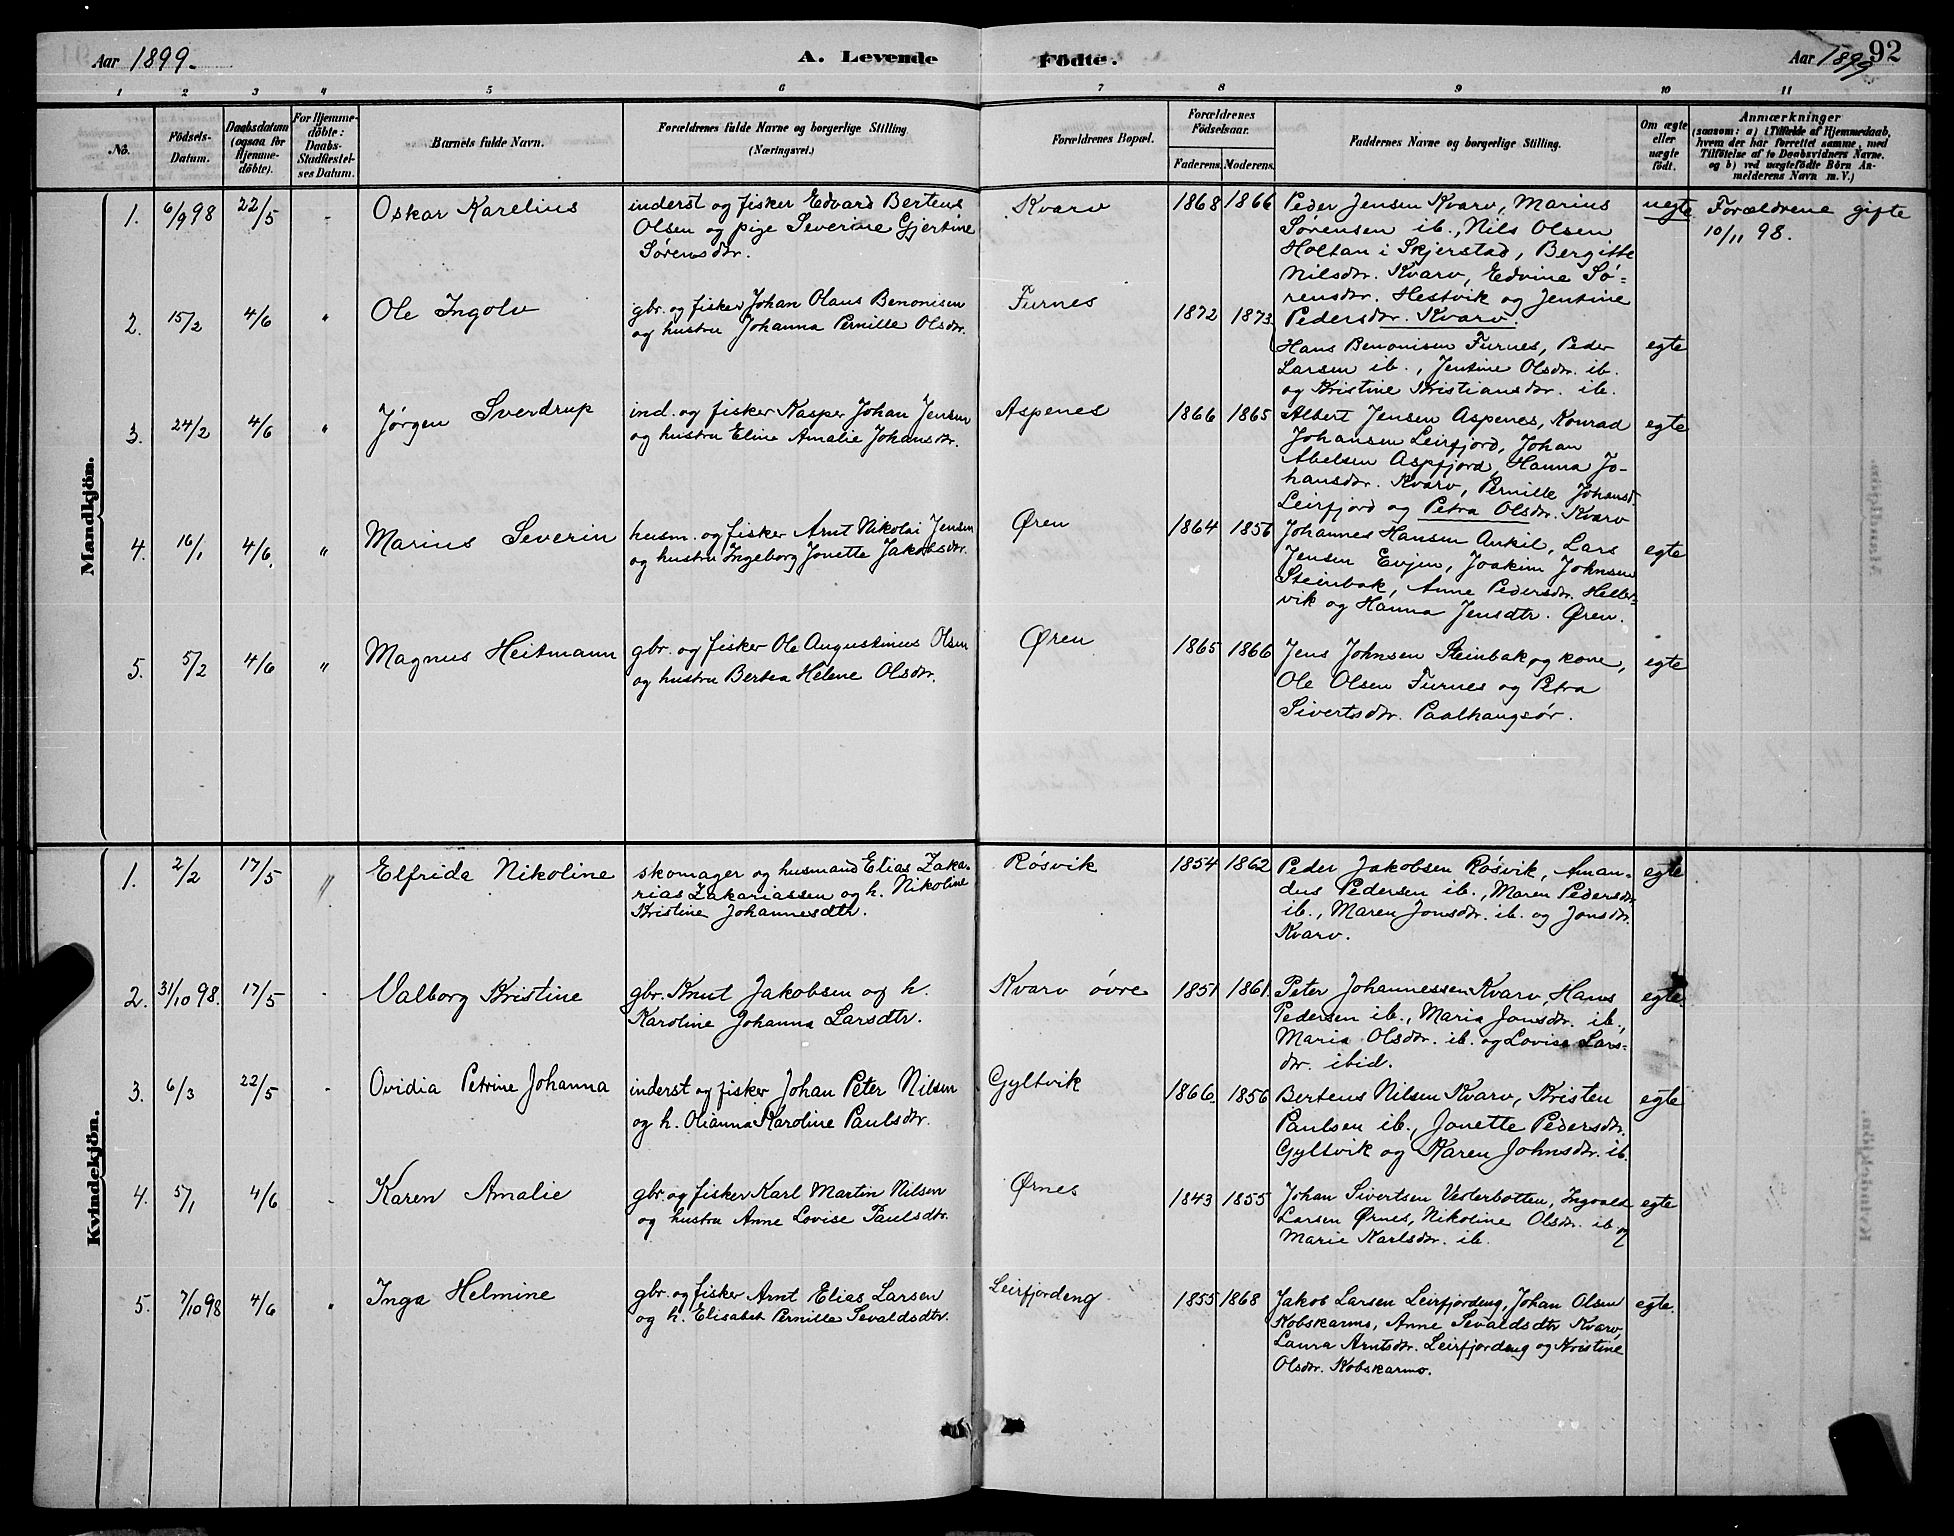 Aar 1899. A. Levende Födte. Aar 1899 92
1 2 3 4 5 6 7 8 9 10 11
No. Födsels-Datum. Daabsdatum (ogsaa for Hjemme-döbte). For Hjemme-döbte: Daabs-Stadfæstel-ses Datum. Barnets fulde Navn. Forældrenes fulde Navne og borgerlige Stilling (Næringsvei.) Forældrenes Bopæl. Forældrenes Födselsaar. Faderens. Moderens. Faddernes Navne og borgerlige Stilling. Om ægte eller uægte födt. Anmærkninger (saasom: a) i Tilfælde af Hjemmedaab, hvem der har forrettet samme, med Tilföielse af to Daabsvidners Navne. og b) ved uægtefödte Börn An-melderens Navn m. V.)
Mandkjön.
1. 6/9 98 22/5 - Oskar Karelius inderst og fisker Edvard Bertens Kvarv 1868 1866 Peder Jensen Kvarv, Marius uegte Forældrene gifte
Olsen og pige Severine Gjertine Sørensen ib., Nils Olsen 10/11 98.
Sørensdtr. Holtan i Skjerstad, Bergitte
Nilsdtr. Kvarv, Edvine Sø-
rensdtr. Hestvik og Jentine
2. 15/2 4/6 " Ole Ingolv gbr. og fisker Johan Olaus Benonisen Furnes 1872 1873 Pedersdtr. Kvarv.
og hustru Johanna Pernille Olsdtr. Hans Benonisen Furnes, Peder egte
Larsen ib., Jentine Olsdtr. ib.
og Kristine Kristiansdtr. ib.
3. 24/2 4/6 " Jørgen Sverdrup ind. og fisker Kasper Johan Jensen Aspenes 1866 1865 Albert Jensen Aspenes, Konrad egte
og hustru Eline Amalie Johansdtr. Johansen Leirfjord, Johan
Abelsen Aspfjord, Hanna Jo-
hansdtr. Kvarv, Pernille Johansd.
Leirfjord og Petra Olsdtr. Kvarv
4. 16/1 4/6. " Marius Severin husm. og fisker Arnt Nikolai Jensen Øren 1864 1856 Johannes Hansen Ankil, Lars egte
og hustru Ingeborg Jonette Jakobsdtr. Jensen Evjen, Joakim Johnsen
Steinbak, Anne Pedersdtr. Heller-
vik og Hanna Jensdtr. Øren.
5. 5/2 4/6 " Magnus Heitmann gbr. og fisker Ole Augustinius Olsen Øren 1865 1866 Jens Johnsen Steinbak og kone, egte
og hustru Bertea Helene Olsdtr. Ole Olsen Furnes og Petra
Sivertsdtr. Paalhaugsør.
Kvindekjön.
1. 2/2 17/5 " Elfrida Nikoline skomager og husmand Elias Zaka- Røsvik 1854 1862 Peder Jakobsen Røsvik, Aman- egte
rias Zakariassen og h. Nikoline dus Pedersen ib., Maren Pedersdtr.
Kristine Johannesdtr. ib., Maren Jonsdtr. ib. og Jonsdtr.
Kvarv.
2. 31/10 98. 17/5 - Valborg Kristine gbr. Knut Jakobsen og h. Kvarv øvre 1851 1861. Peter Johannessen Kvarv, Hans egte.
Karoline Johanna Larsdtr. Pedersen ib., Maria Jonsdtr. ib.,
Maria Olsdtr. ib. og Lovise Lars-
dtr. ibid.
3. 6/3 22/5 - Ovidia Petrine Johanna inderst og fisker Johan Peter Nilsen Gyltvik 1866. 1856 Bertens Nilsen Kvarv, Kristen egte
og h. Olianna Karoline Paulsdtr. Paulsen ib., Jonette Pedersdtr.
Gyltvik og Karen Johnsdtr. ib.
4. 5/1 4/6 - Karen Amalie gbr. og fisker Karl Martin Nilsen Ørnes 1843 1855 Johan Sivertsen Vesterbotten, Ingvald egte
og hustru Anne Lovise Paulsdtr. Larsen Ørnes, Nikoline Olsdtr. ib og
Marie Karlsdtr. ib.
5. 7/10 98 4/6 " Inga Helmine gbr. og fisker Arnt Elias Larsen Leirfjordeng 1855 1868 Jakob Larsen Leirfjordeng, Johan Olsen egte.
og h. Elisabet Pernille Sevaldsdtr. Kobskarmo, Anne Sevaldsdtr Kvarv,
Laura Arntsdtr. Leirfjordeng og Kristine
Olsdtr. Kobskarmo.